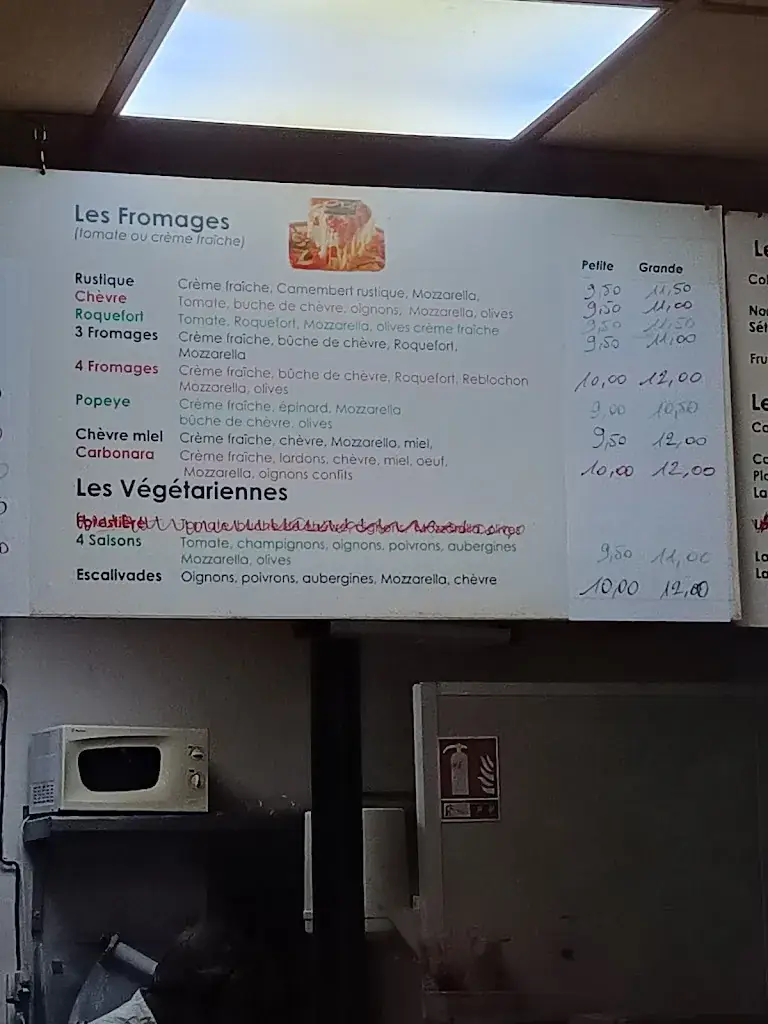 Les Fromages
(tomate ou crème fraîche)
Petite Grande
Rustique Crème fraîche, Camembert rustique, Mozzarella, 9,50 11,50
Chèvre Tomate, buche de chèvre, oignons, Mozzarella, olives 9,50 11,00
Roquefort Tomate, Roquefort, Mozzarella, olives crème fraîche 9,50 11,50
3 Fromages Crème fraîche, bûche de chèvre, Roquefort, 9,50 11,00
Mozzarella
4 Fromages Crème fraîche, bûche de chèvre, Roquefort, Reblochon 10,00 12,00
Mozzarella, olives
Popeye Crème fraîche, épinard, Mozzarella 9,00 10,50
bûche de chèvre, olives
Chèvre miel Crème fraîche, chèvre, Mozzarella, miel, 9,50 12,00
Carbonara Crème fraîche, lardons, chèvre, miel, oeuf, 10,00 12,00
Mozzarella, oignons confits
Les Végétariennes
4 Saisons Tomate, champignons, oignons, poivrons, aubergines 9,50 11,00
Mozzarella, olives
Escalivades Oignons, poivrons, aubergines, Mozzarella, chèvre 10,00 12,00